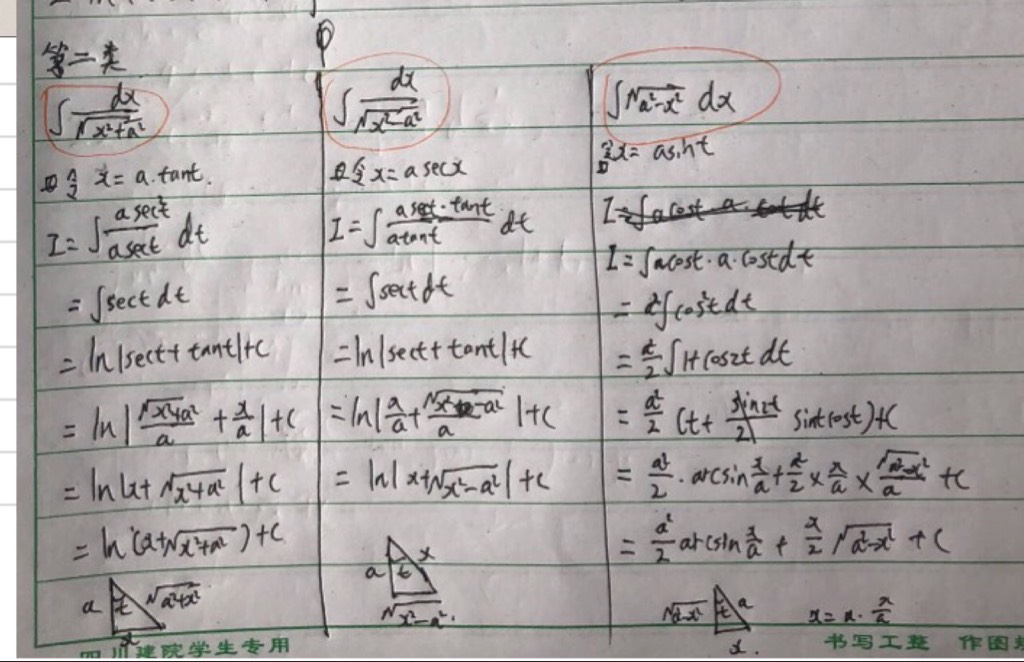 第二类
∫ dx/√(x²+a²)
令 x = a·tant.
I = ∫ a sec²t / a sect dt
= ∫ sect dt
= ln|sect + tant| + C
= ln|√(x²+a²)/a + x/a| + C
= ln|x + √(x²+a²)| + C
= ln(x + √(x²+a²)) + C
a t √(a²+x²)
x
∫ dx/√(x²-a²)
令 x = a secx
I = ∫ a sect·tant / a tant dt
= ∫ sect dt
= ln|sect + tant| + C
= ln|x/a + √(x²-a²)/a| + C
= ln|x + √(x²-a²)| + C
a t x
√(x²-a²).
∫ √(a²-x²) dx
令 x = a sint
I = ∫ a cost·a·cost dt
= a² ∫ cos²t dt
= a²/2 ∫ 1+cos2t dt
= a²/2 (t + sint cost) + C
= a²/2 · arcsin x/a + a²/2 × x/a × √(a²-x²)/a + C
= a²/2 arcsin x/a + x/2 √(a²-x²) + C
√(a²-x²) t a
x.
x = a · x/a
四川建院学生专用
书写工整 作图